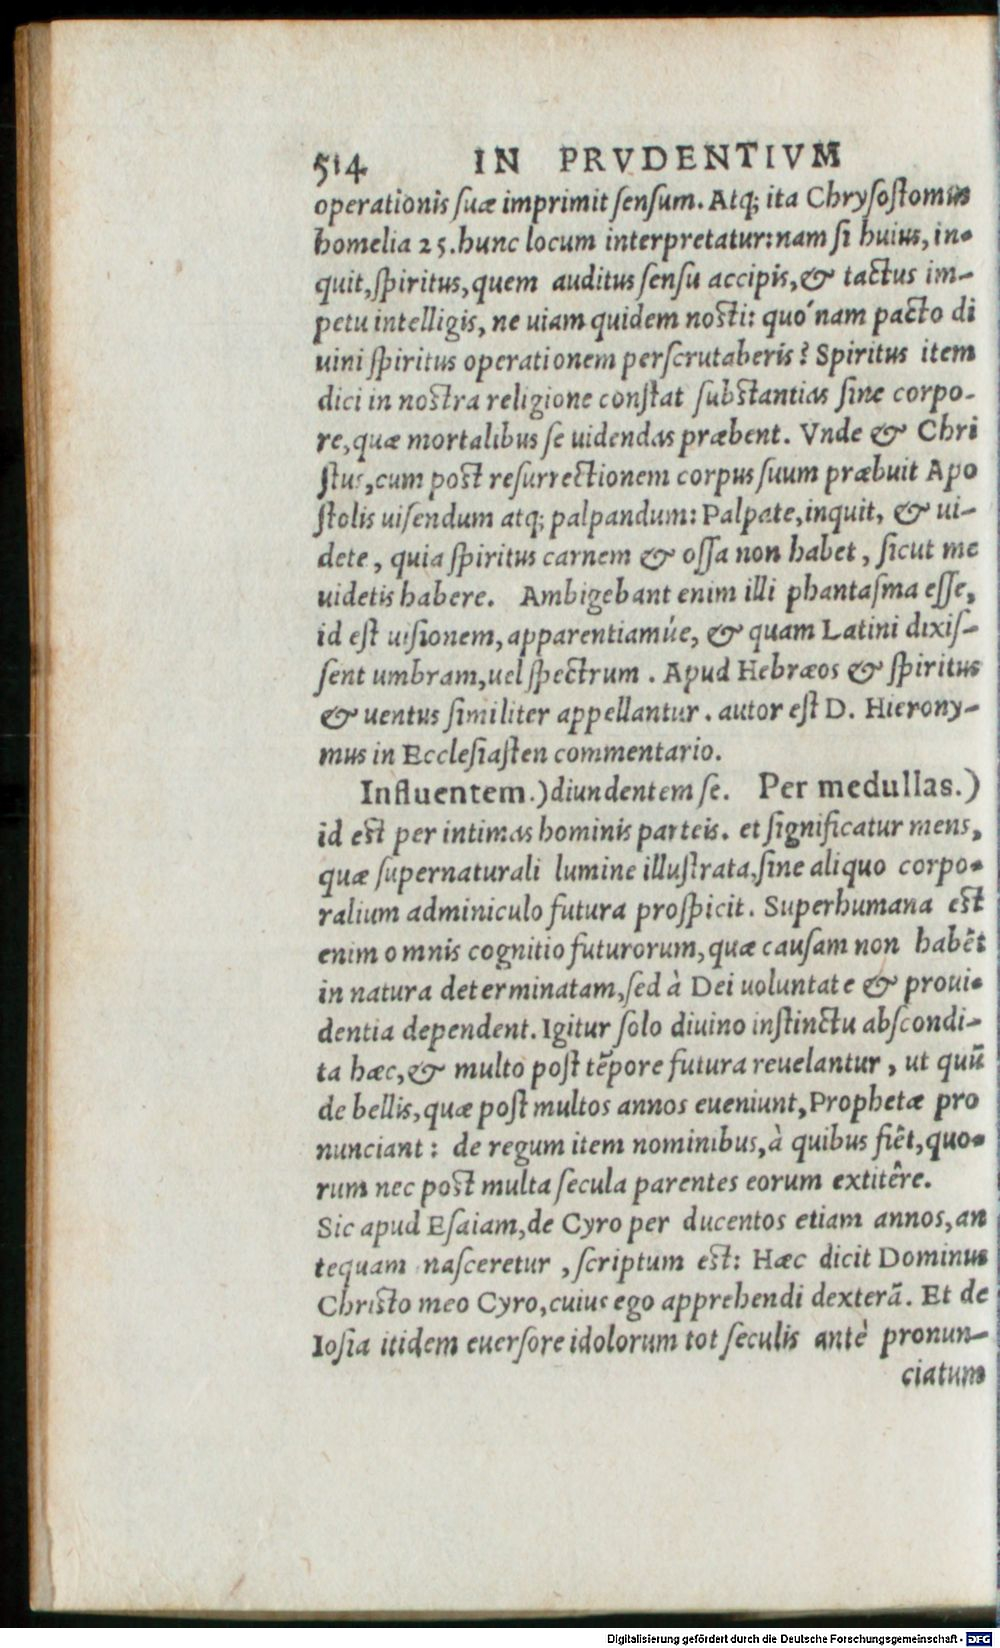 514 IN PRVDENTIVM
operationis suæ imprimit sensum. Atq; ita Chrysostomus
homelia 25. hunc locum interpretatur: nam si huius, in-
quit, spiritus, quem auditus sensu accipis, & tactus im-
petu intelligis, ne uiam quidem nosti: quó nam pacto di
uini spiritus operationem perscrutaberis? Spiritus item
dici in nostra religione constat substantias sine corpo-
re, quæ mortalibus se uidendas præbent. Vnde & Chri
stus, cum post resurrectionem corpus suum præbuit Apo
stolis uisendum atq; palpandum: Palpate, inquit, & ui-
dete, quia spiritus carnem & ossa non habet, sicut me
uidetis habere. Ambigebant enim illi phantasma esse,
id est uisionem, apparentiamúe, & quam Latini dixis-
sent umbram, uel spectrum. Apud Hebræos & spiritus
& uentus similiter appellantur. autor est D. Hierony-
mus in Ecclesiasten commentario.
Influentem.) diundentem se. Per medullas.)
id est per intimas hominis parteis. et significatur mens,
quæ supernaturali lumine illustrata, sine aliquo corpo-
ralium adminiculo futura prospicit. Superhumana est
enim omnis cognitio futurorum, quæ causam non habẽt
in natura determinatam, sed à Dei uoluntate & proui-
dentia dependent. Igitur solo diuino instinctu abscondi-
ta hæc, & multo post tẽpore futura reuelantur, ut quũ
de bellis, quæ post multos annos eueniunt, Prophetæ pro
nunciant: de regum item nominibus, à quibus fiẽt, quo-
rum nec post multa secula parentes eorum extitêre.
Sic apud Esaiam, de Cyro per ducentos etiam annos, an
tequam nasceretur, scriptum est: Hæc dicit Dominus
Christo meo Cyro, cuius ego apprehendi dexterã. Et de
Iosia itidem euersore idolorum tot seculis antè pronun-
ciatum
Digitalisierung gefördert durch die Deutsche Forschungsgemeinschaft - DFG